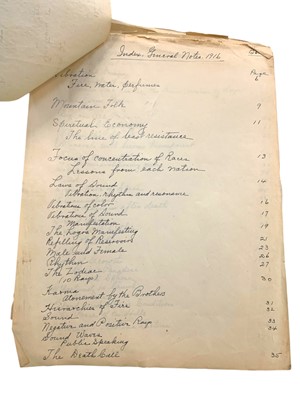 Index General Notes 1916
Page
Vibration 6
Fire, Water, Perfumes
Mountain Folk 9
Spiritual Economy 11
The line of least resistance
Focus of concentration of Races 13
Lessons from each nation
Laws of Sound 14
Vibration, rhythm and resonance
Vibration of color 16
Vibrations of Sound 17
Manifestation
The Logos Manifesting 19
Refilling of Reservoir 21
Male and Female 23
Rhythm 26
The Zodiac 27
110 Rays 30
Karma
Atonement by the Brothers
Hierarchies of Fire 31
Sound 32
Negative and Positive Rays 33
Sound Waves 34
Public Speaking
The Death Call 35